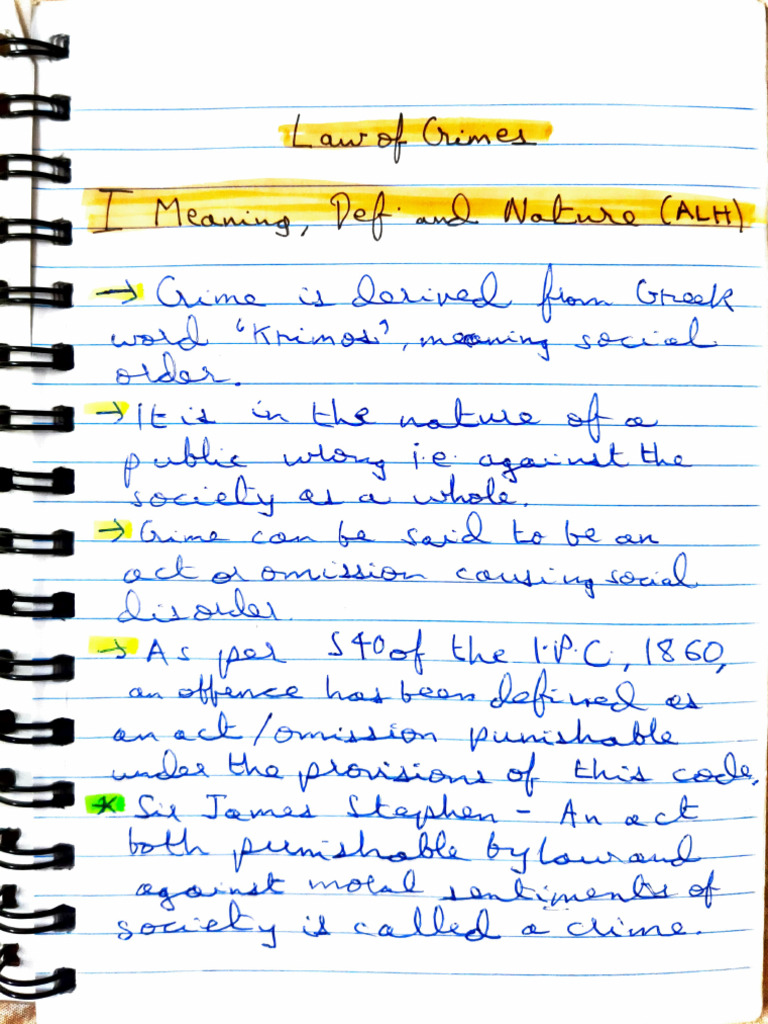 Law of Crimes
I Meaning, Def. and Nature (ALH)
→ Crime is derived from Greek
word 'Krimos', meaning social
order.
→ It is in the nature of a
public wrong i.e. against the
society as a whole.
→ Crime can be said to be an
act or omission causing social
disorder.
→ As per S40 of the I.P.C., 1860,
an offence has been defined as
an act/omission punishable
under the provisions of this code.
* Sir James Stephen - An act
both punishable by law and
against moral sentiments of
society is called a crime.